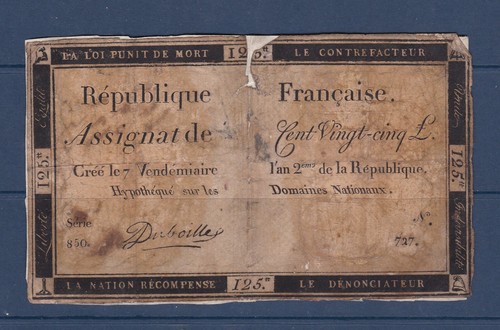 LA LOI PUNIT DE MORT 125.ᵗᵗ LE CONTREFACTEUR
République Française.
Assignat de Cent Vingt-cinq ₶.
Créé le 7 Vendemiaire l'an 2.eme de la République.
Hypothéqué sur les Domaines Nationaux.
Série N.o
850. 727.
Dubolle
Egalité
125.ᵗᵗ
Liberté
125.ᵗᵗ
LA NATION RÉCOMPENSE 125.ᵗᵗ LE DÉNONCIATEUR